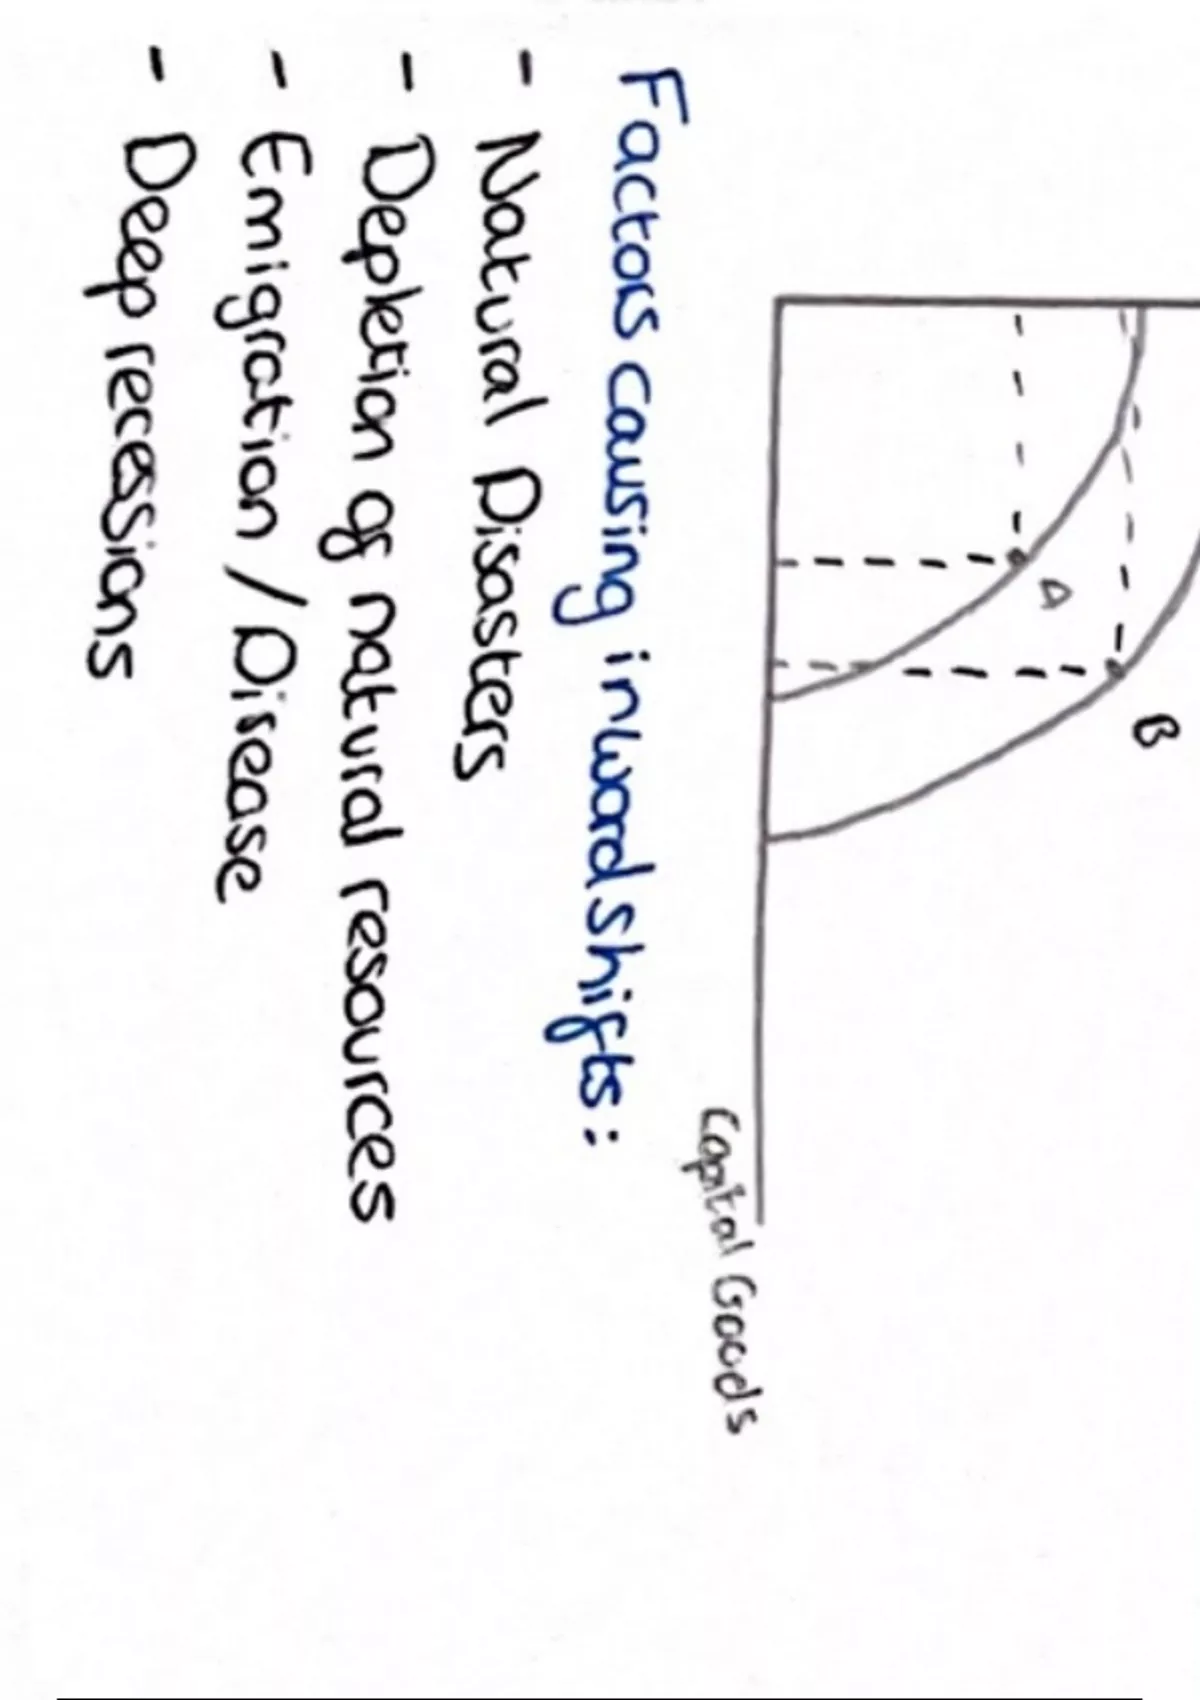 A
B
Capital Goods
Factors causing inward shifts:
- Natural Disasters
- Depletion of natural resources
- Emigration / Disease
- Deep recessions